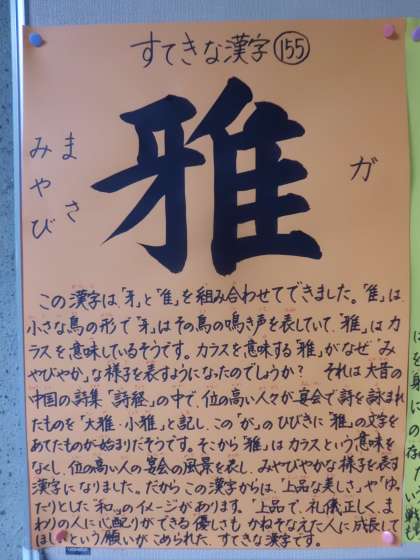 すてきな漢字 155
雅
ガ
まさ
みやび
この漢字は「牙」と「隹」を組み合わせてできました。「隹」は、
小さな鳥の形で「牙」はその鳥の鳴き声を表していて、「雅」はカ
ラスを意味しているそうです。カラスを意味する「雅」がなぜ「み
やびやか」な様子を表すようになったのでしうか? それは大昔の
中国の詩集「詩経」の中で、位の高い人々が宴会で詩を詠まれ
たものを「大雅・小雅」と記し、この「が」のひびきに「雅」の文字を
あてたものが始まりだそうです。そこから「雅」はカラスという意味を
なくし、位の高い人の宴会の風景を表し、みやびやかな様子を表す
漢字になりました。だからこの漢字からは、「上品な美しさ」や「ゆっ
たりとした「和」」のイメージがあります。“上品で、礼儀正しく、ま
わりの人に心配りができる優しさも かねそなえた人に成長して
ほしい„という願いがこめられた、すてきな漢字です。